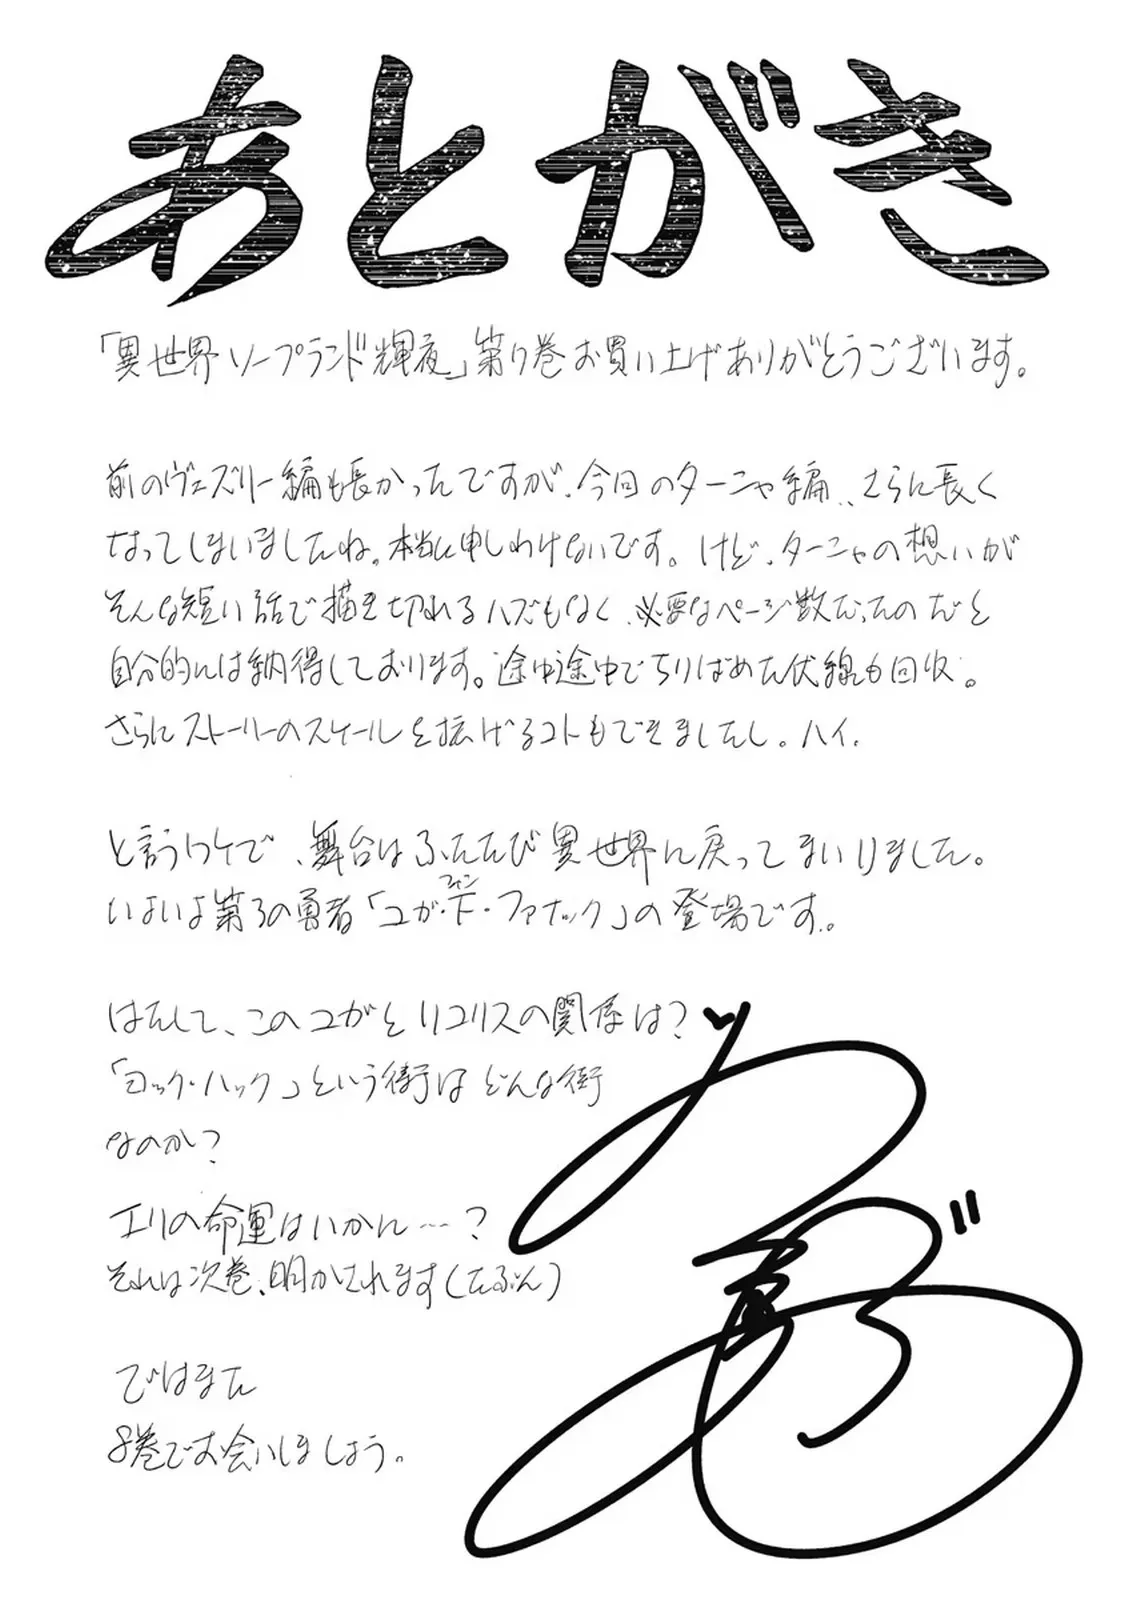 あとがき
「異世界ソープランド輝夜」第7巻お買い上げありがとうございます。
前のヴェズリー編も長かったですが、今回のターニャ編、さらに長く
なってしまいましたね。本当に申しわけないです。けど、ターニャの想いが
そんな短い話で描き切れるハズもなく、必要なページ数だったのだと
自分的には納得しております。途中途中でちりばめた伏線も回収。
さらにストーリーのスケールを拡げるコトもできましたし。ハイ。
と言うワケで、舞台はふたたび異世界に戻ってまいりました。
いよいよ第3の勇者「ユガ・下・ファナック」の登場です。
フォン
はたして、このユガとリコリスの関係は?
「ヨック・ハック」という街はどんな街
なのか?
エリの命運はいかに…?
それは次巻、明かされます(たぶん)
ではまた
8巻でお会いしましょう。